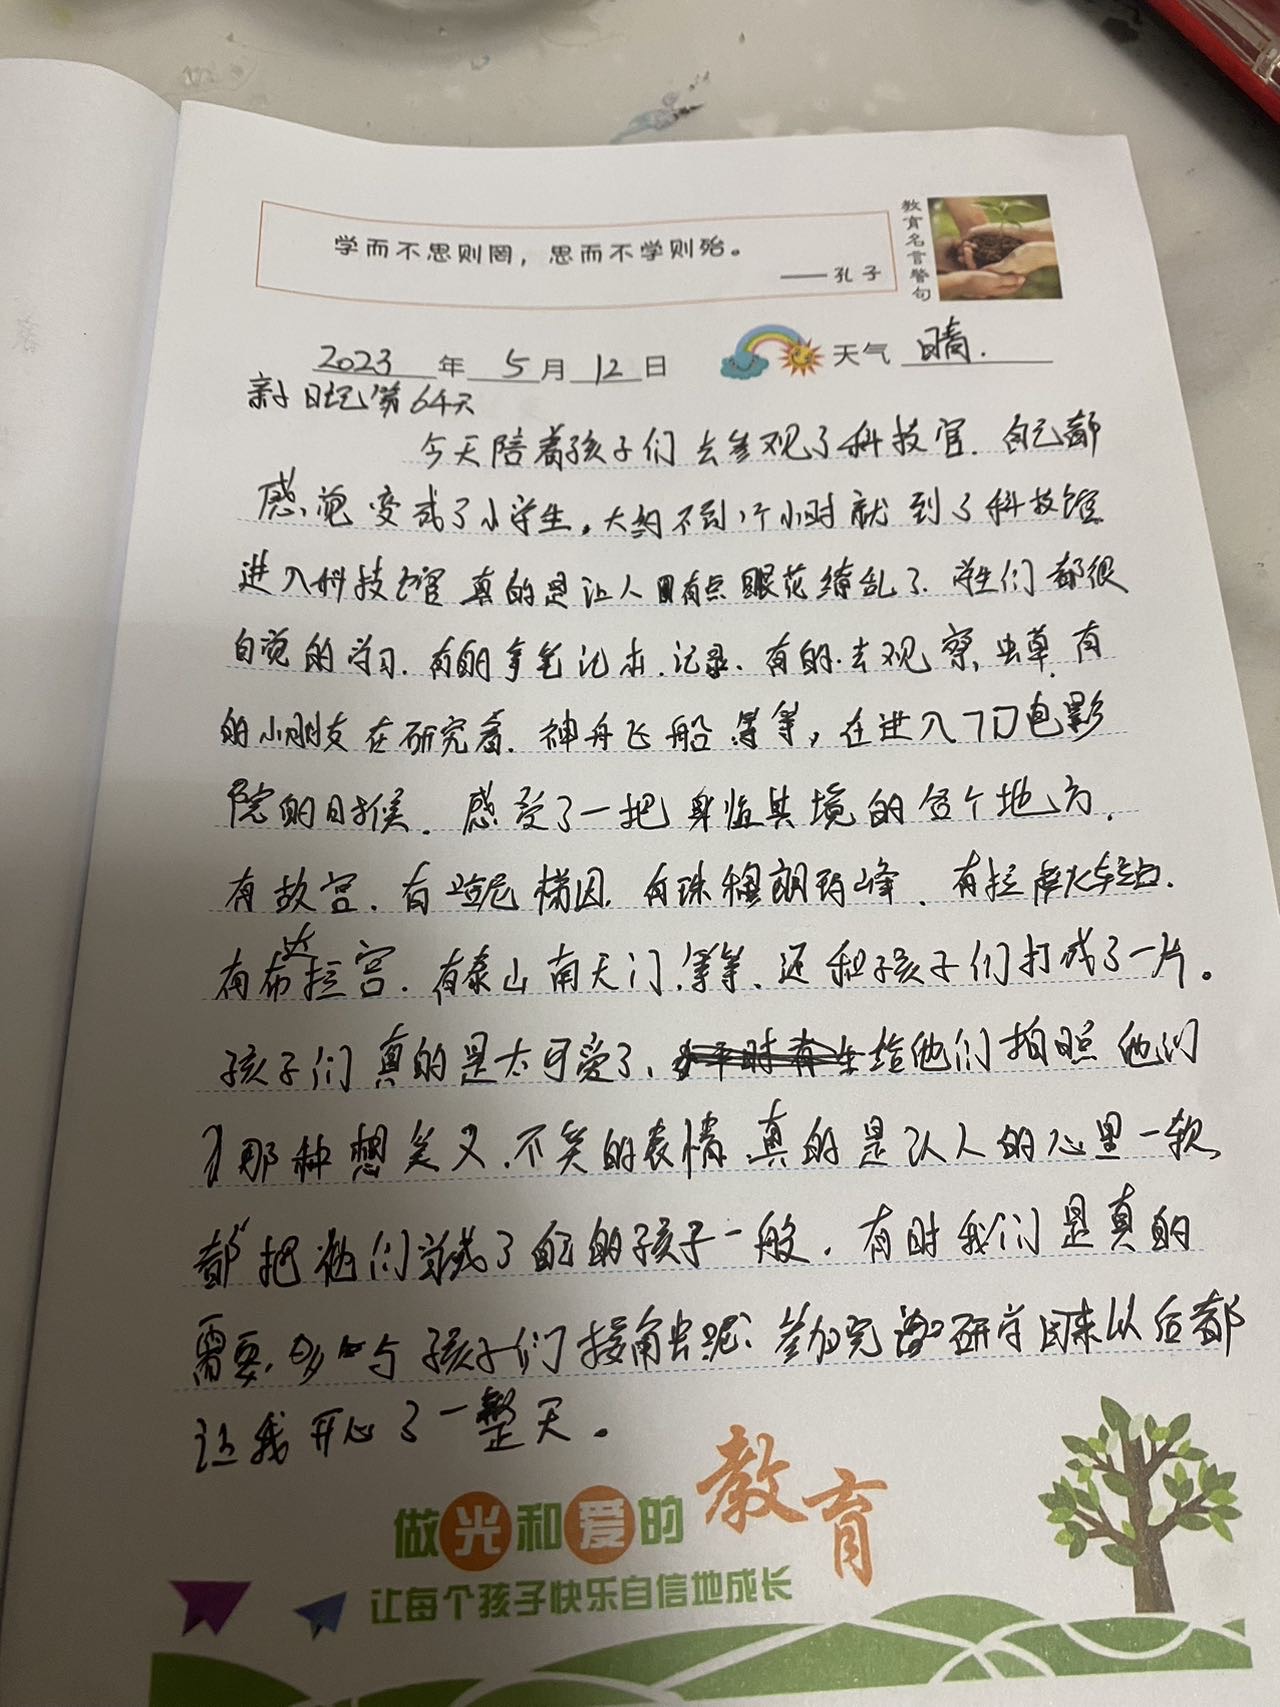 学而不思则罔，思而不学则殆。
——孔子
教育名言警句
2023年5月12日 天气 晴.
亲子日记第64天
今天陪着孩子们去参观了科技官.自己都
感觉变成了小学生。大约不到1个小时就到了科技馆
进入科技馆真的是让人有点眼花缭乱了.学生们都很
自觉的学习.有的拿笔记本.记录.有的.去观察虫草.有
的小朋友在研究着.神舟飞船等等，在进入7D电影
院的时候.感受了一把身临其境的各个地方.
有故宫.有 有珠穆朗玛峰.有拉萨火车站.
有布达拉宫.有泰山南天门.等等、还和孩子们打成了一片。
孩子们真的是太可爱了、给他们拍照他们
那种想笑又.不笑的表情真的是让人的心里一软
都把他们当成了自己的孩子一般.有时我们是真的
需要.多与孩子们接角虫呢、参加完研学回来以后都
让我开心了一整天。
做光和爱的教育
让每个孩子快乐自信地成长